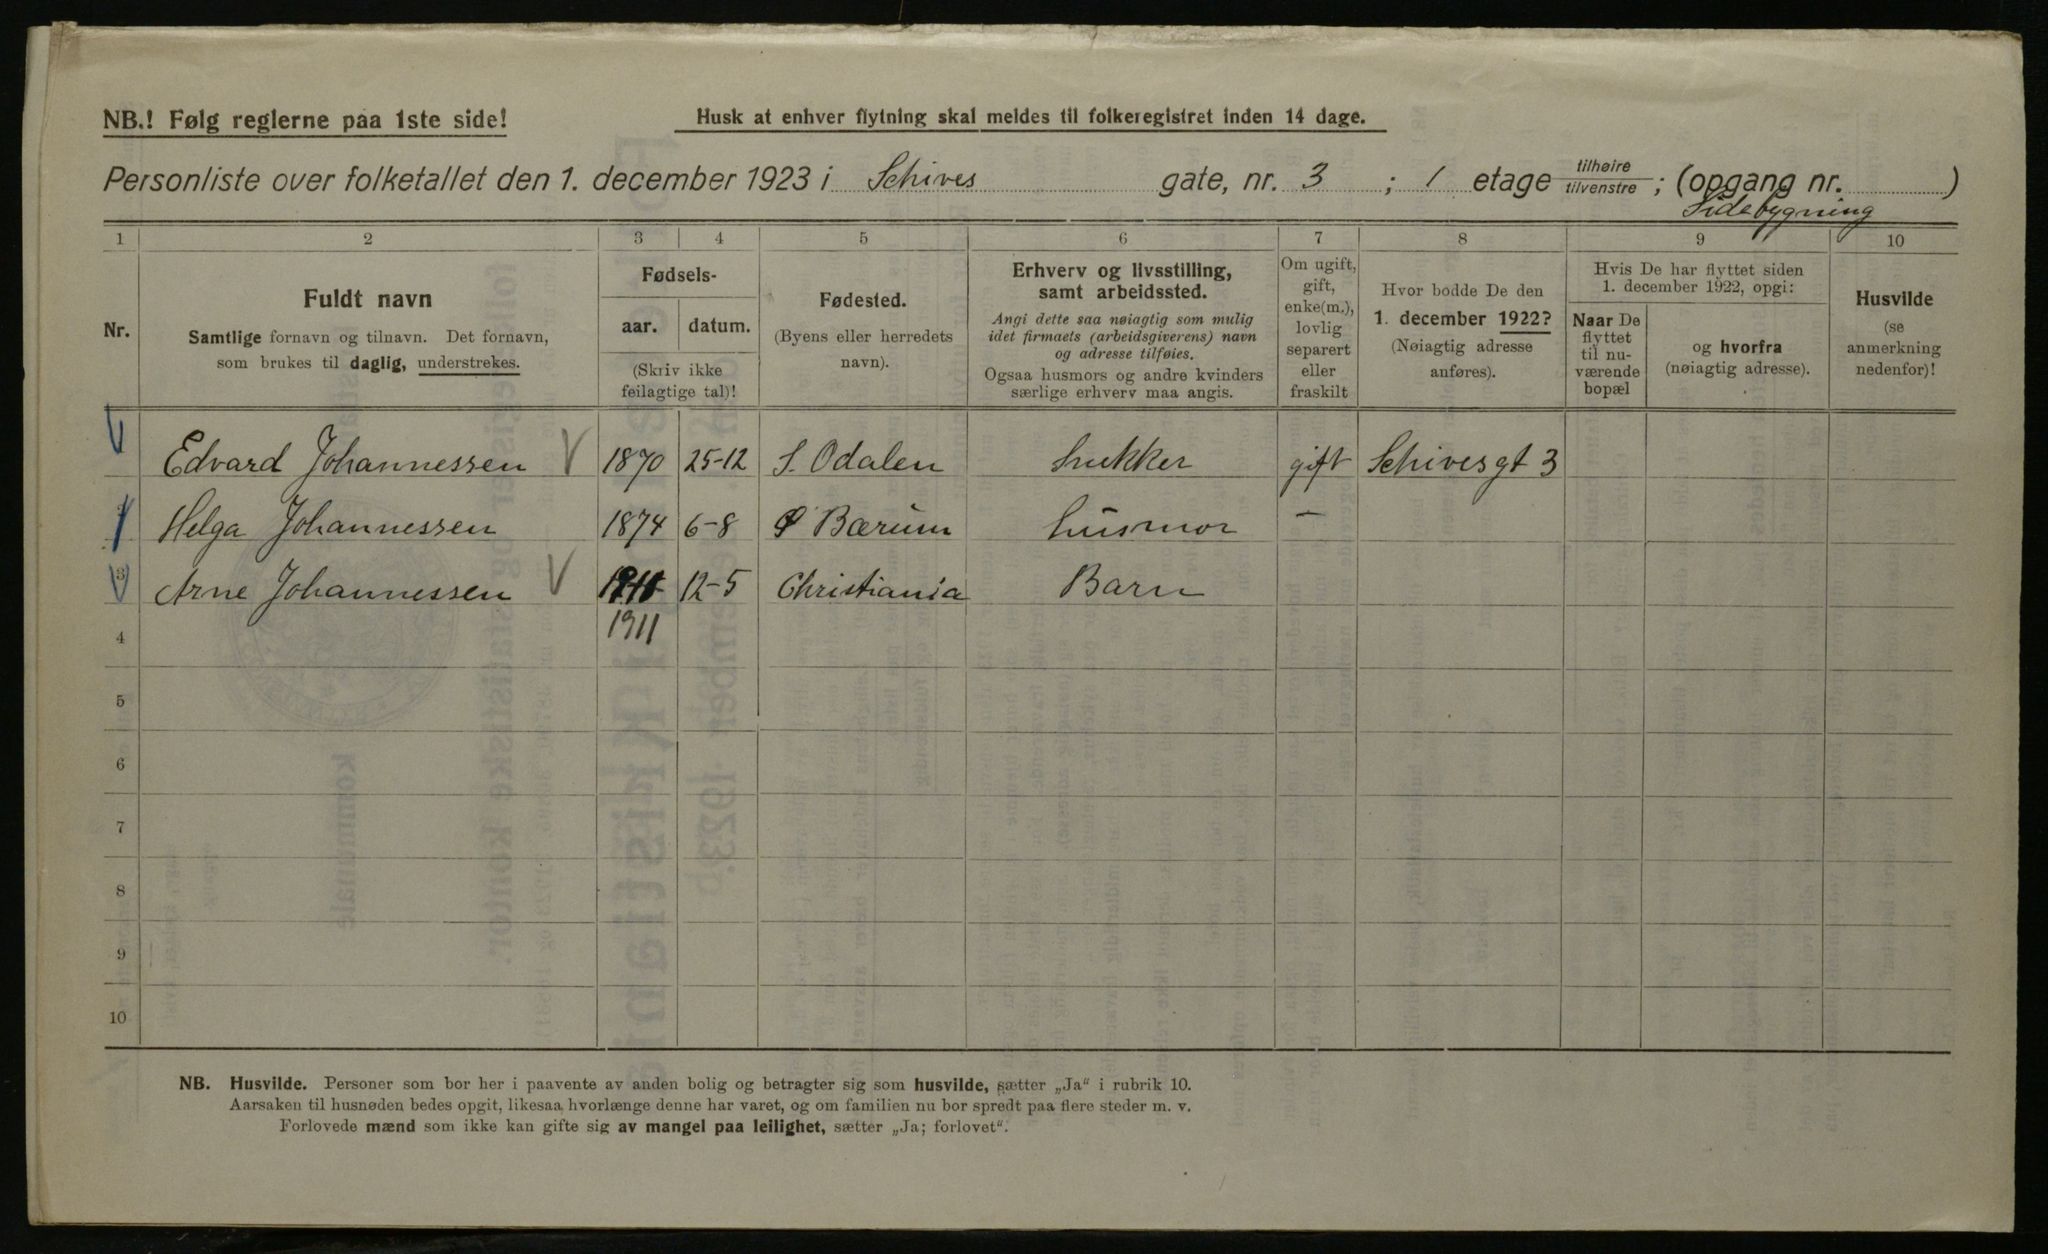 NB.! Følg reglerne paa 1ste side!
Husk at enhver flytning skal meldes til folkeregistret inden 14 dage.
Personliste over folketallet den 1. december 1923 i Schives gate, nr. 3 ; 1 etage tilhøire tilvenstre ; (opgang nr. )
Sidebygning
1 2 3 4 5 6 7 8 9 10
Nr.
Fuldt navn
Samtlige fornavn og tilnavn. Det fornavn,
som brukes til daglig, understrekes.
Fødsels-
aar. datum.
(Skriv ikke
feilagtige tal)!
Fødested.
(Byens eller herredets
navn).
Erhverv og livsstilling,
samt arbeidssted.
Angi dette saa nøiagtig som mulig
idet firmaets (arbeidsgiverens) navn
og adresse tilføies.
Ogsaa husmors og andre kvinders
særlige erhverv maa angis.
Om ugift,
gift,
enke(m.),
lovlig
separert
eller
fraskilt
Hvor bodde De den
1. december 1922?
(Nøiagtig adresse
anføres).
Hvis De har flyttet siden
1. december 1922, opgi:
Naar De
flyttet
til nu-
værende
bopæl
og hvorfra
(nøiagtig adresse).
Husvilde
(se
anmerkning
nedenfor)!
Edvard Johannessen 1870 25-12 S. Odalen gift Schivesgt 3
Helga Johannessen 1874 6-8 Bærum husmor –
3 Arne Johannessen 12-5 Christiania Barn
4 1911
5
6
7
8
9
10
NB. Husvilde. Personer som bor her i paavente av anden bolig og betragter sig som husvilde, sætter „Ja" i rubrik 10.
Aarsaken til husnøden bedes opgit, likesaa hvorlænge denne har varet, og om familien nu bor spredt paa flere steder m. v.
Forlovede mænd som ikke kan gifte sig av mangel paa leilighet, sætter „Ja; forlovet".